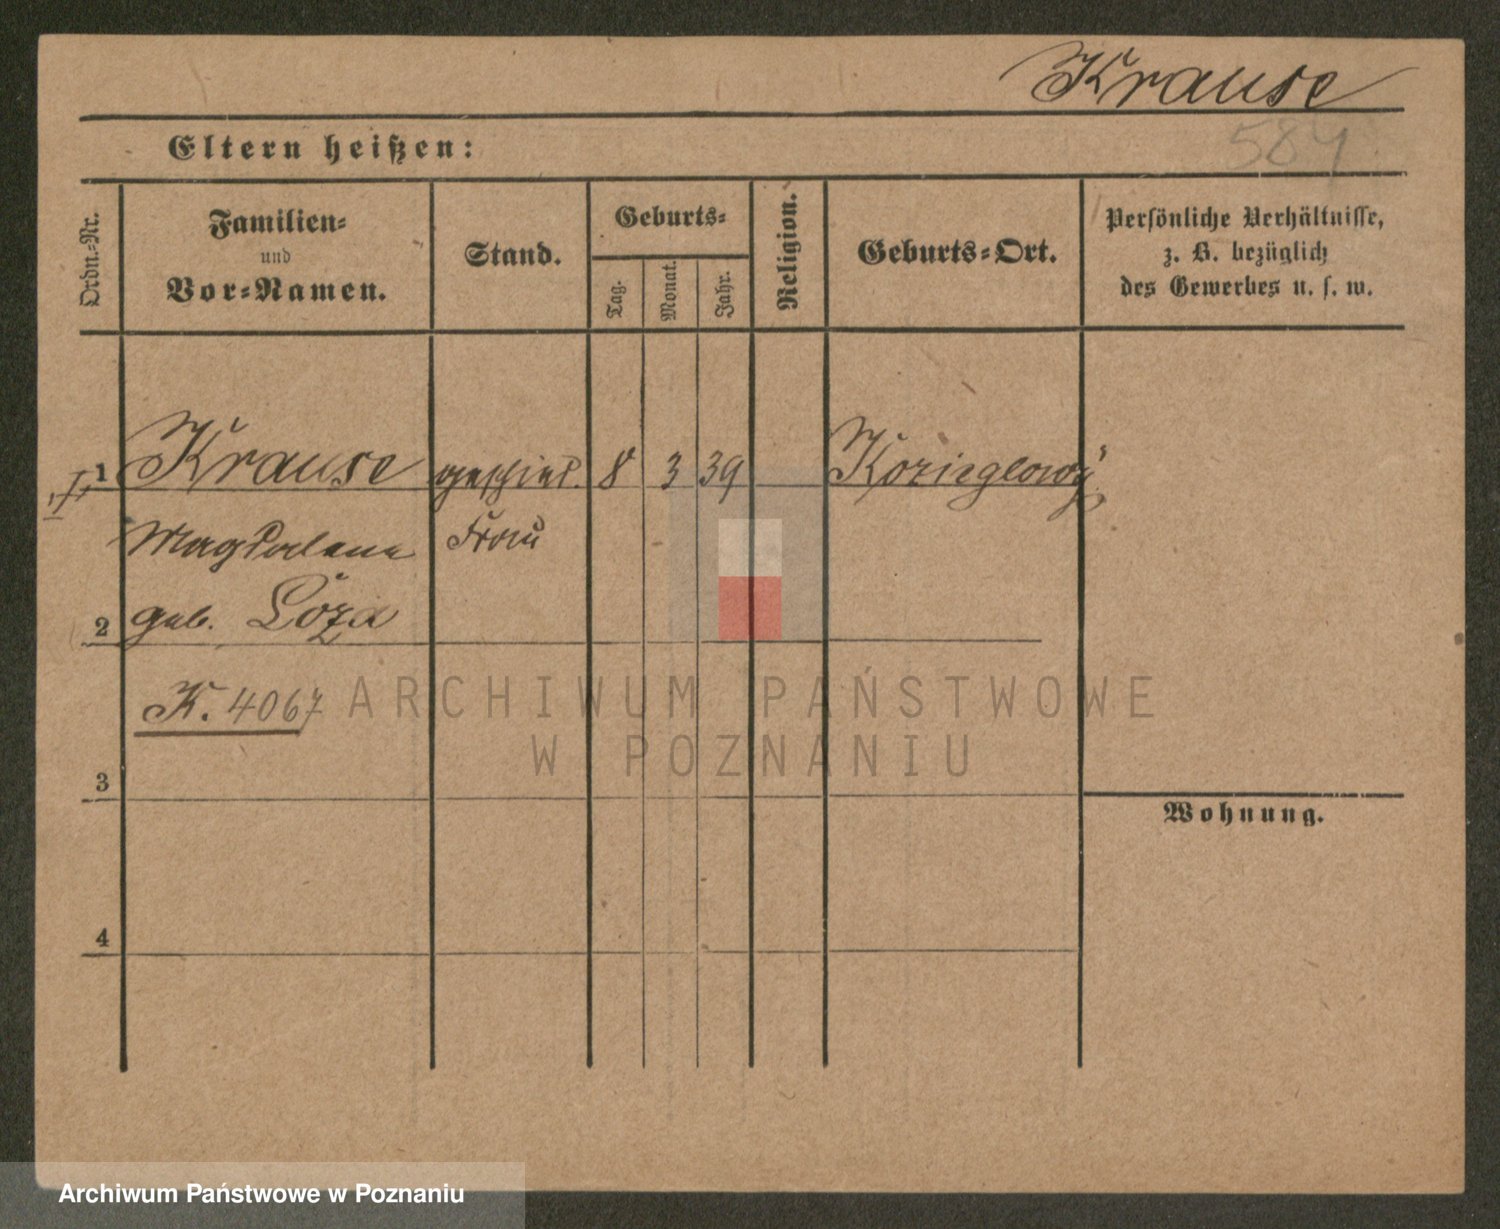 Krause
Eltern heißen:
584
Ordn.-Nr.
Familien-
und
Vor-Namen.
Stand.
Geburts-
Tag.
Monat.
Jahr.
Religion.
Geburts-Ort.
Persönliche Verhältnisse,
z. B. bezüglich
des Gewerbes u. s. w.
1 Krause geschied. 8 3 39 Kozieglowy
Magdalena Frau
2 geb. Lóza
K. 4067
ARCHIWUM PAŃSTWOWE
W POZNANIU
3
Wohnung.
4
Archiwum Państwowe w Poznaniu